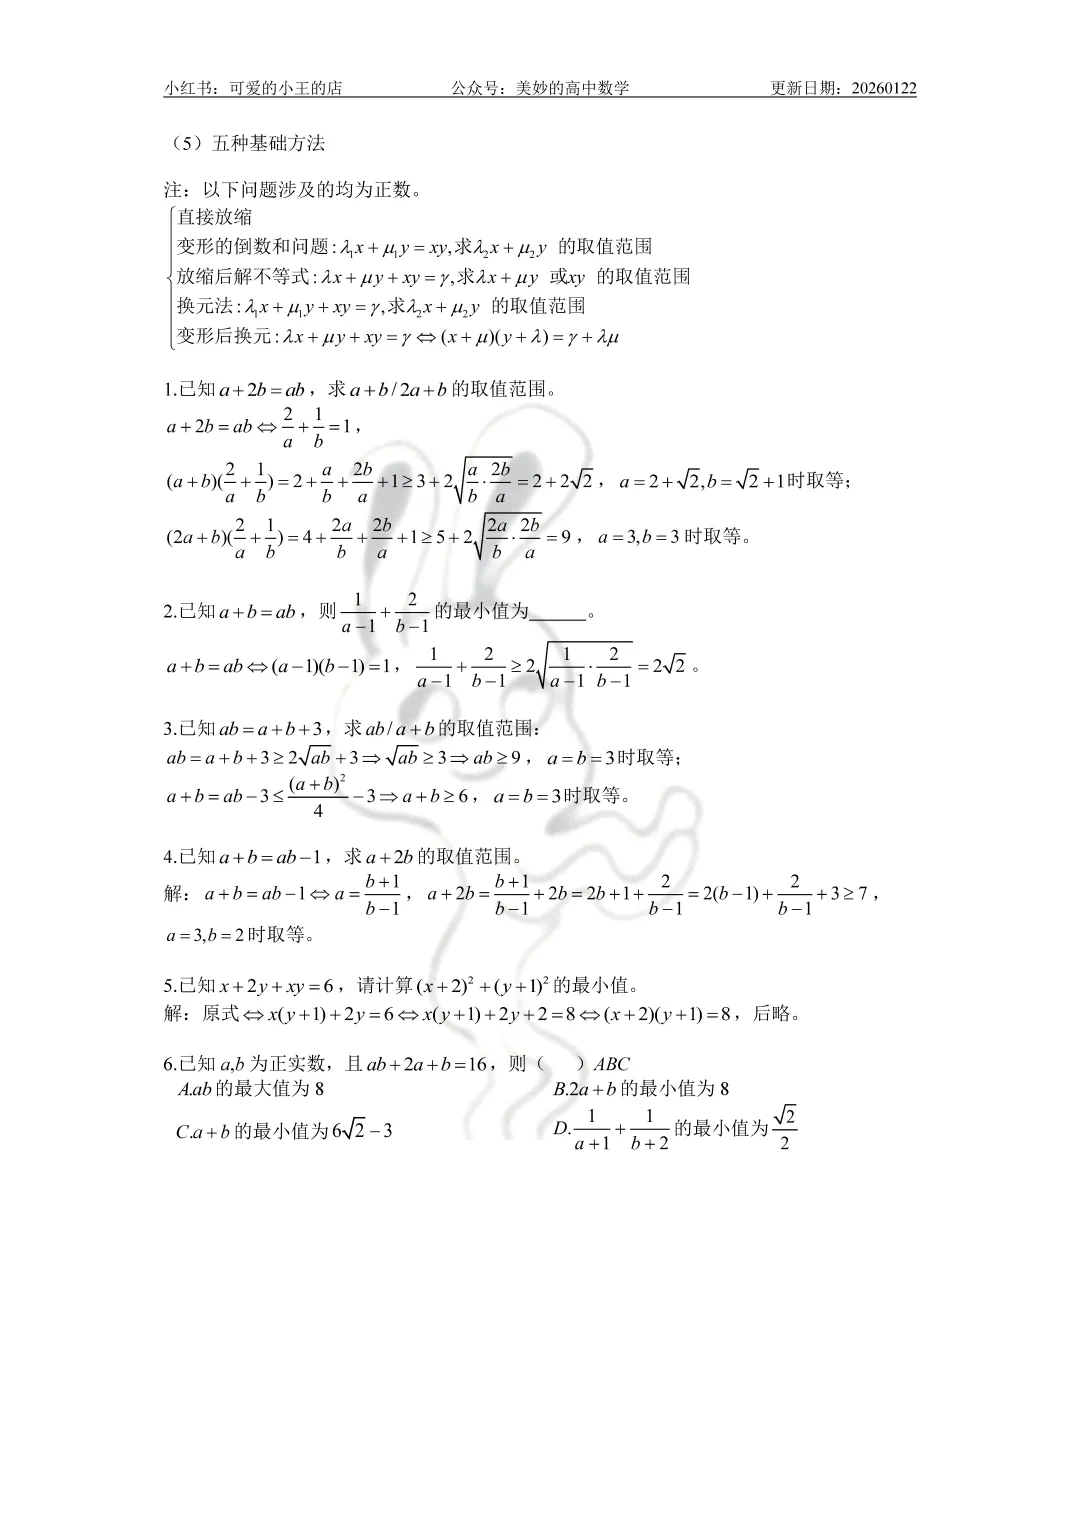 小红书：可爱的小王的店 公众号：美妙的高中数学 更新日期：20260122
（5）五种基础方法
注：以下问题涉及的均为正数。
直接放缩
变形的倒数和问题：λ₁x + μ₁y = xy,求λ₂x + μ₂y 的取值范围
放缩后解不等式：λx + μy + xy = γ,求λx + μy 或xy 的取值范围
换元法：λ₁x + μ₁y + xy = γ,求λ₂x + μ₂y 的取值范围
变形后换元：λx + μy + xy = γ ⇔ (x + μ)(y + λ) = γ + λμ
1.已知 a + 2b = ab，求 a + b / 2a + b 的取值范围。
a + 2b = ab ⇔ 2/a + 1/b = 1，
(a + b)(2/a + 1/b) = 2 + a/b + 2b/a + 1 ≥ 3 + 2√(a/b · 2b/a) = 2 + 2√2，a = 2 + √2, b = √2 + 1时取等；
(2a + b)(2/a + 1/b) = 4 + 2a/b + 2b/a + 1 ≥ 5 + 2√(2a/b · 2b/a) = 9，a = 3, b = 3 时取等。
2.已知 a + b = ab，则 1/(a−1) + 2/(b−1) 的最小值为______。
a + b = ab ⇔ (a − 1)(b − 1) = 1，1/(a−1) + 2/(b−1) ≥ 2√(1/(a−1) · 2/(b−1)) = 2√2。
3.已知 ab = a + b + 3，求 ab / a + b 的取值范围：
ab = a + b + 3 ≥ 2√ab + 3 ⇒ √ab ≥ 3 ⇒ ab ≥ 9，a = b = 3时取等；
a + b = ab − 3 ≤ (a + b)²/4 − 3 ⇒ a + b ≥ 6，a = b = 3时取等。
4.已知 a + b = ab − 1，求 a + 2b 的取值范围。
解：a + b = ab − 1 ⇔ a = (b+1)/(b−1)，a + 2b = (b+1)/(b−1) + 2b = 2b + 1 + 2/(b−1) = 2(b − 1) + 2/(b−1) + 3 ≥ 7，
a = 3, b = 2 时取等。
5.已知 x + 2y + xy = 6，请计算 (x + 2)² + (y + 1)² 的最小值。
解：原式 ⇔ x(y + 1) + 2y = 6 ⇔ x(y + 1) + 2y + 2 = 8 ⇔ (x + 2)(y + 1) = 8，后略。
6.已知 a,b 为正实数，且 ab + 2a + b = 16，则（ ）ABC
A.ab 的最大值为 8 B.2a + b 的最小值为 8
C.a + b 的最小值为 6√2 − 3 D. 1/(a+1) + 1/(b+2) 的最小值为 √2/2